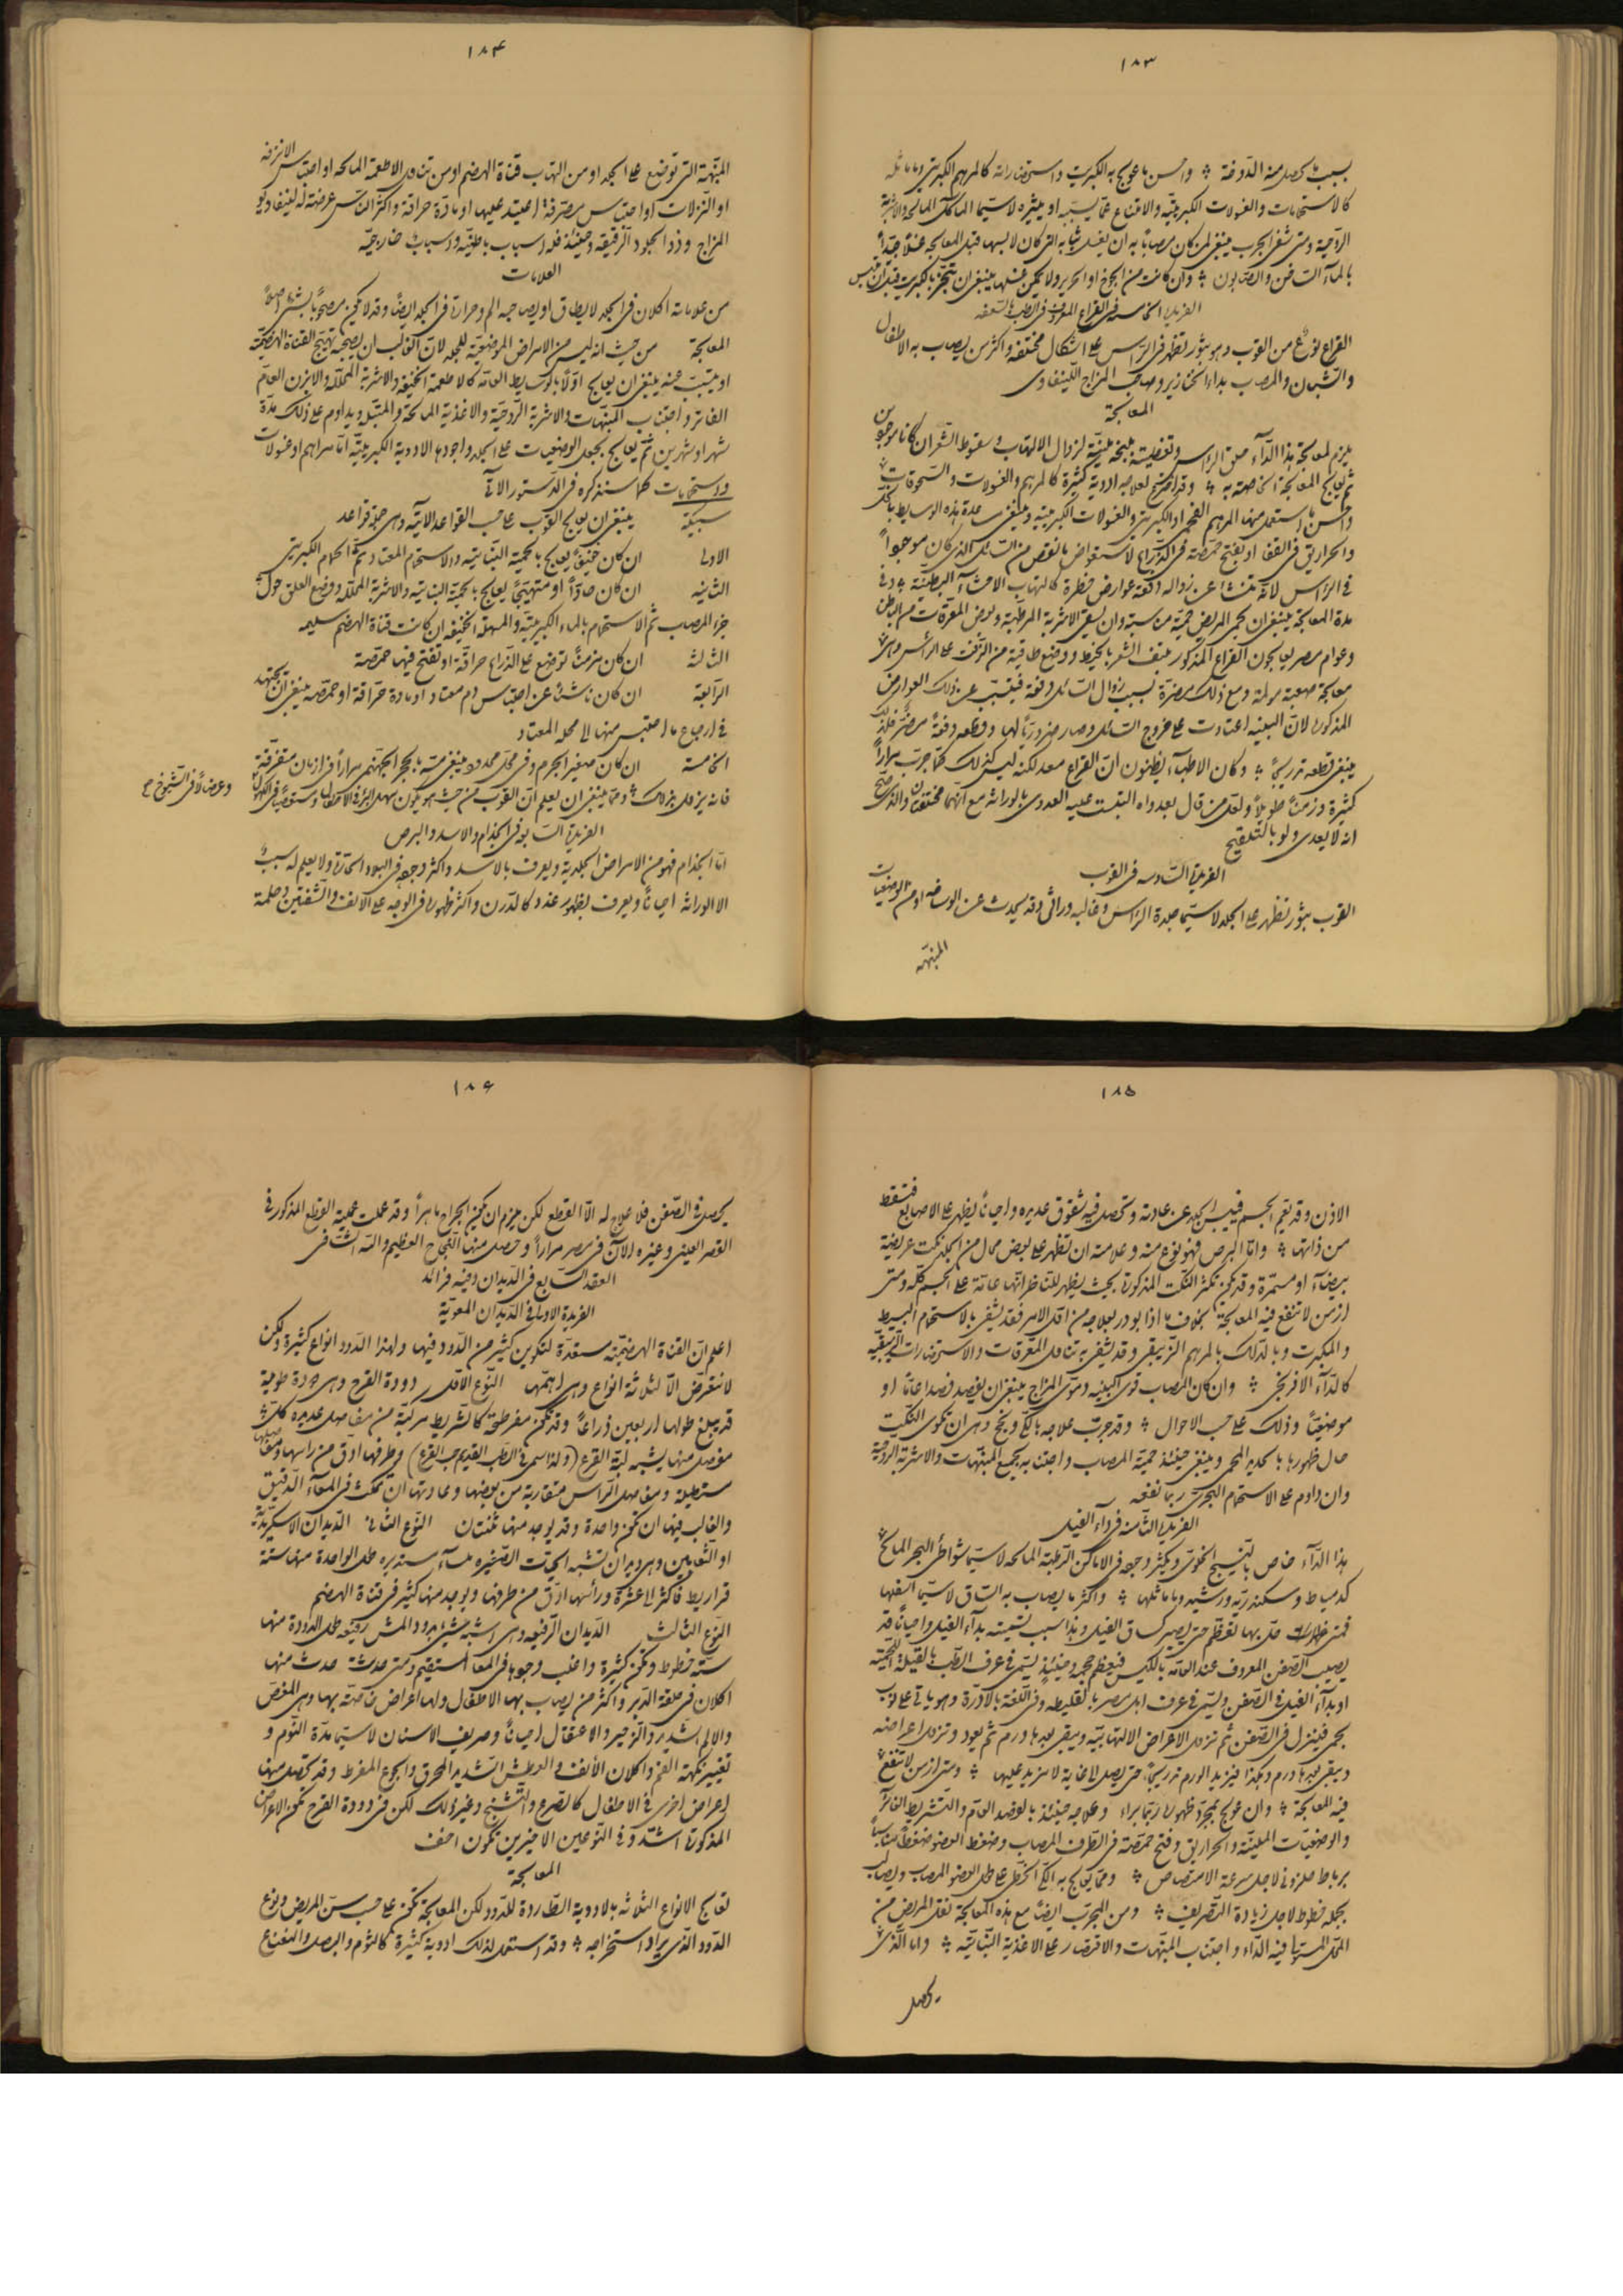 ١٨٣
بسبب ما تحصل منه الدوخة واحسن ما عولج به الكبريت واستحضاراته كالمرهم الكبريتى وما ماثله
كالاستحمامات والغسولات الكبريتية والامتناع عما يسببه او يثيره لاسيما المأكل المالح والاشربة
الروحية ومتى شفى الجرب ينبغى لمن كان مصابًا به ان يغسل ثيابه التى كان لابسها قبل المعالجة غسلًا جيدًا
بالماء الساخن والصابون وان كانت من الجوخ او الحرير ولا يمكن غسلها ينبغى ان تبخر بالكبريت قبل ان تلبس
الفريدة الخامسة فى القراع المعروف فى الطب بالسعفه
القراع نوع من القوب وهو بثور تظهر فى الرأس على اشكال مختلفه واكثر من يصاب به الاطفال
والشبان والمصاب بداء الخنازير وصاحب المزاج اللينفاوى
المعالجة
يلزم لمعالجة هذا الداء حلق الراس وتغطيته بلبخة ملينة لزوال الالتهاب وسقوط القشر ان كانا موجودين
ثم يعالج المعالجة الخاصة به وقد اخترع لعلاجه ادوية كثيرة كالمرهم والغسولات والسحوقات
واحسن ما استعمل منها المرهم الفحمى او الكبريتى والغسولات الكبريتية وينبغى مساعدة هذه الوسايط
والحراريق فى القفا او بفتح حمصة فى الذراع لاستعواض ما نقص من السائل الذى كان موجودًا
فى الراس لانه تنشأ عن زواله دفعة عوارض خطرة كالتهاب الاحشاء البطنية وفى
مدة المعالجة ينبغى ان يحمى المريض حمية مناسبة وان يسقى الاشربة المرطبة وبعض المعرقات
وعوام مصر يعالجون القراع المذكور بنتف الشعر بالخيط ووضع طاقية من الزفت على الرأس وهى
معالجة صعبة مؤلمة ومع ذلك مضرة بسبب زوال السائل دفعة فيتسبب عن ذلك العوارض
المذكورة لان البنيه اعتادت على خروج السائل وصار ضروريًا لها وقطعه دفعةً مضر فلذلك
ينبغى قطعه تدريجًا وكان الاطباء يظنون ان القراع معد لكنه ليس كذلك كما جرب مرارًا
كثيرة وزمنًا طويلًا ولعل من قال بعدواه التبست عليه العدوى بالوراثة مع انهما مختلفتان والذى صح
انه لا يعدى ولو بالتلقيح
الفريدة السادسه فى القوب
القوب بثور تظهر على الجلد لاسيما جلدة الراس وغالبه وراثى وقد يحدث عن الوساخه او من الوضعيات
المنبهه
١٨۴
المنبهة التى توضع على الجلد او من التهاب قناة الهضم او من تناول الاطعمة المالحه او احتباس الانزفه
او النزلات او احتباس منصرفة اعتيد عليها او مادة حرافة واكثر الناس عرضة له لينفاويو
المزاج وذوو الجلود الرقيقه وحينئذ فله اسباب باطنيّه واسباب خارجيّه
العلامات
من علاماته اكلان فى الجلد لا يطاق او يصاحبه الم وحرارة فى الجلد ايضًا وقد لا يكون مصحوبًا بشئ اصلًا
المعالجة من حيث انه ليس من الامراض الموضعية للجلد لان الغالب ان يصحبه تهيج القناة الهضمية
او يتسبب عنه ينبغى ان يعالج اولًا بالوسايط العامة كالاطعمة الخفيفة والاشربة المحللة والابزن العام
الفاتر واجتناب المنبهات والاشربة الروحية والاغذية المالحة والمتبلة ويداوم على ذلك مدة
شهر او شهرين ثم يعالج بجعل الوضعيات على الجلد واجودها الادوية الكبريتية اما مراهم او غسولات
واستحمامات كما سنذكره فى الدستور الآتى
سبيكة ينبغى ان يعالج القوب على حسب القواعد الآتيه وهى خمسة قواعد
الاولى ان كان خفيفًا يعالج بالحمية النباتية والاستحمام المعتاد ثم الحمام الكبريتى
الثانيه ان كان حادًا او متهيجًا يعالج بالحمية النباتية والاشربة المحللة ووضع العلق حول
الجزء المصاب ثم الاستحمام بالماء الكبريتية والمسهلة الخفيفه ان كانت قناة الهضم سليمه
الثالثة ان كان مزمنًا توضع على الذراع حراقة او تفتح فيها حمصة
الرابعة ان كان ناشئًا عن احتباس دم معتاد او مادة حرافة او حمصه ينبغى ان يجتهد
فى ارجاع ما احتبس منها الى محله المعتاد
الخامسة ان كان صغير الجرم وفى محل محدود ينبغى مسّه بالحجر الجهنمى مرارًا فى ازمان متفرقة
فانه يزول بذلك ومما ينبغى ان يعلم ان القوب من حيث هو يكون سهل البرء فى الاطفال ومستعصيًا فى الكهول
وعضالًا فى الشيوخ صح
الفريدة السابعة فى الجذام والاسد والبرص
اما الجذام فهو من الامراض الجلدية ويعرف بالاسد واكثر وجوده فى البلاد الحارة ولا يعلم له سبب
الا الوراثة احيانًا ويعرف بظهور عقد كالدرن واكثر ظهورها فى الوجه على الانف والشفتين وحلمة
١٨۵
الاذن وقد تعم الجسم فيبس الجلد عن عادته وتحصل فيه شقوق عديده واحيانًا يظهر على الاصابع فتسقط
من ذاتها واما البرص فهو نوع منه وعلامته ان تظهر على بعض محال من الجلد نكت عريضة
بيضاء او مسمرة وقد تكثر النكت المذكورة بحيث يظهر للناظر انها عامة على الجسم كله ومتى
ازمن لا تنفع فيه المعالجة بخلاف ما اذا بودر بعلاجه من اول الامر فقد يشفى بالاستحمام البسيط
والمكبرت وبالدلك بالمرهم الزيبقى وقد يشفى بتناول المعرقات والاستحضارات الزيبقيه
كالداء الافرنجى وان كان المصاب قوى البنيه دموى المزاج ينبغى ان يفصد فصدا عامًا او
موضعيًا وذلك على حسب الاحوال وقد جرب علاجه بالكى ونجح وهى ان تكوى النكت
حال ظهورها بالحديد المحمى وينبغى حينئذ حمية المصاب واجتنابه جميع المنبهات والاشربة الروحية
وان داوم على الاستحمام البحرى ربما نفعه
الفريدة الثامنه فى داء الفيل
هذا الداء خاص بالنسيج الخلوى ويكثر وجوده فى الاماكن الرطبة المالحه لاسيما شواطئ البحر المالح
كدمياط وسكندرية ورشيد وما ماثلها واكثر ما يصاب به الساق لاسيما اسفلها
فمتى ظهرت حل بها تعظم حتى يصير كساق الفيل وهذا سبب تسميته بداء الفيل واحيانًا قد
يصيب الصفن المعروف عند العامة بالكيس فيعظم حجمه وحينئذ يسمى فى عرف الطب بالقيلة اللحميّة
او بداء الفيل فى الصفن ويسمى فى عرف اهل مصر بالقليطه وفى اللغة بالادرة وهو ياتى على نوب
بحمى فينزل فى الصفن ثم تزول الاعراض الالتهابية ويبقى بعدها ورم ثم يعود وتزول اعراضه
ويبقى بعدها ورم وهكذا فيزيد الورم تدريجًا حتى يصل الى غاية لا مزيد عليها ومتى ازمن لا تنفع
فيه المعالجة وان عولج بمجرد ظهوره ربما براء وعلاجه حينئذ بالفصد العام والتشريط الغائر
والوضعيات الملينة والحراريق وفتح حمصة فى الطرف المصاب وضغط العضو ضغطًا مناسبًا
برباط حلزونى لاجل سرعة الامتصاص ومما يعالج به الكى الخطى على طول العضو المصاب ويصاب
بجملة خطوط لاجل زيادة التصريف ومن المجرب ايضًا مع هذه المعالجة نقل المريض من
المحل المستوبا فيه الداء واجتناب المنبهات والاقتصار على الاغذية النباتية واما الذى
يحصل
١٨۶
يحصل فى الصفن فلا علاج له الا القطع لكن يلزم ان يكون الجراح ماهرًا وقد عملت عملية القطع المذكور فى
القصر العينى وغيره الآن فى مصر مرارًا وحصل منها النجاح العظيم والله الشافى
العقد السابع فى الديدان وفيه فرائد
الفريدة الاولى فى الديدان المعوية
اعلم ان القناة الهضمية مستعدة لتكوين كثير من الدود فيها ولهذا الدود انواع كثيرة ولكن
لا نتعرض الا لثلاثة انواع وهى اهمها النوع الاول دودة القرع وهى دودة طويلة
قد يبلغ طولها اربعين ذراعًا وقد تكون مفرطحة كالشريط مركبة من مفاصل عديده كل
مفصل منها يشبه لبة القرع (ولذا سمى فى الطب القديم حب القرع) وطرفها ادق من راسها ومفاصلها
مستطيلة ومفاصل الراس متقاربة من بعضها وعادتها ان تمكث فى المعاء الدقيق
والغالب فيها ان تكون واحدة وقد يوجد منها ثنتان النوع الثانى الديدان الاسكريدية
او الثعابين وهى ديدان تشبه الحيات الصغيره ملساء مستديره طول الواحدة منها ستة
قراريط فاكثر الى عشرة ورأسها ادق من طرفها ويوجد منها كثير فى قناة الهضم
النوع الثالث الديدان الرفيعه وهى اشبه شئ بدود المش رفيعه طول الدودة منها
ستة خطوط وتكون كثيرة واغلب وجودها فى المعا المستقيم ومتى حدثت حدث منها
اكلان فى حلقة الدبر واكثر من يصاب بها الاطفال ولها اعراض خاصة بها وهى المغص
والالم الشديد والزحير والاعتقال احيانًا وصريف الاسنان لاسيما مدة النوم و
تغيير نكهة الفم واكلان الانف والعطش الشديد المحرق والجوع المفرط وقد تحصل منها
اعراض اخرى فى الاطفال كالصرع والتشنج وغير ذلك لكن فى دودة القرع تكون الاعراض
المذكورة اشد وفى النوعين الاخيرين تكون اخف
المعالجة
تعالج الانواع الثلاثه بالادوية الطاردة للدود لكن المعالجة تكون على حسب سن المريض ونوع
الدود الذى يراد استخراجه وقد استعمل لذلك ادوية كثيرة كالثوم والبصل والنعناع